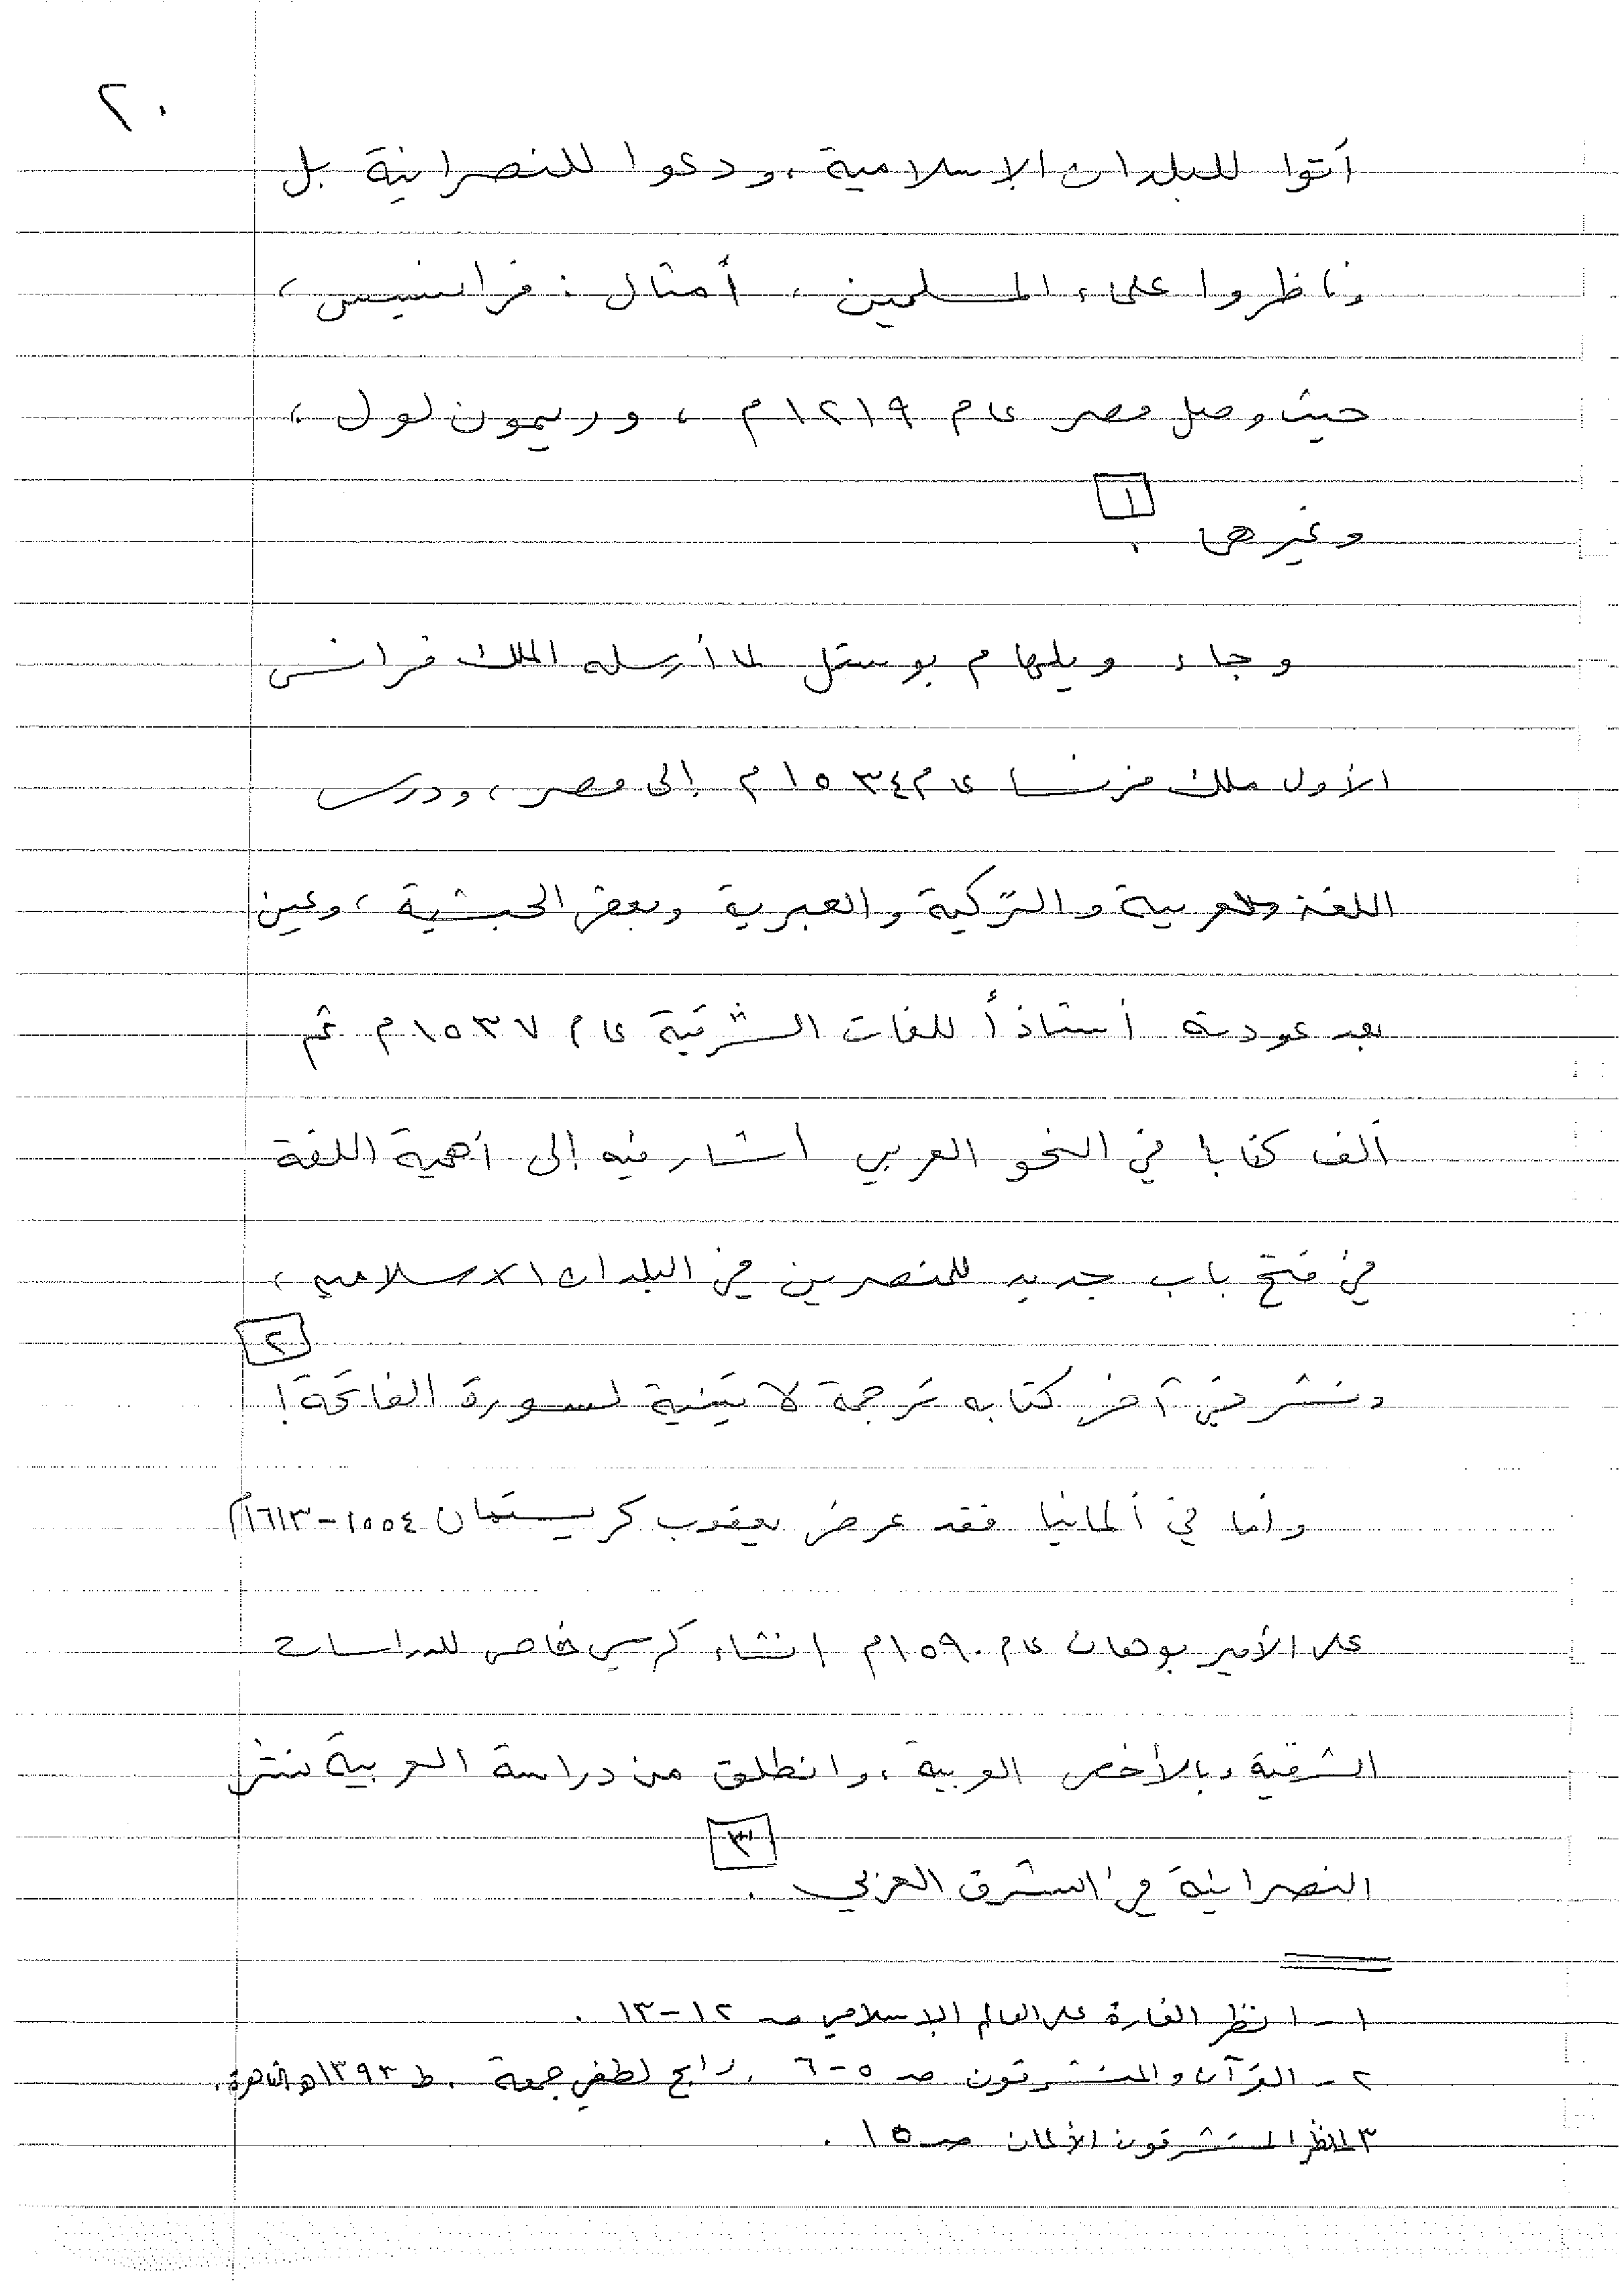 ٢٠
أتوا للبلدان الإسلامية ، ودعوا للنصرانية بل
وناظروا علماء المسلمين ، أمثال : فرانسيس ،
حيث وصل مصر عام ١٢١٩م ، وريمون لول ،
وغيرهما . [١]
وجاء ويلهام بوستل لما أرسله الملك فرانس
الأول ملك فرنسا عام ١٥٣٤م إلى مصر ، ودرس
اللغة العربية والتركية والعبرية وبعض الحبشية ، وعين
بعد عودته أستاذاً للغات الشرقية عام ١٥٣٧م ثم
ألف كتابا في النحو العربي أشار فيه إلى أهمية اللغة
في فتح باب جديد للمنصرين في البلدان الاسلامية ،
ونشر في آخر كتابه ترجمة لاتينية لسورة الفاتحة ! [٢]
وأما في ألمانيا فقد عرض يعقوب كريستمان ١٥٥٤-١٦١٣م
على الأمير يوهان عام ١٥٩٠م انشاء كرسي خاص للدراسات
الشرقية وبالأخص العربية ، وانطلق من دراسة العربية لنشر
النصرانية في المشرق العربي . [٣]
١ - انظر الغارة على العالم الإسلامي صـ ١٢-١٣ .
٢ - القرآن والمستشرقون صـ ٥-٦ . رابح لطفي جمعة . ط ١٣٩٣هـ القاهرة .
٣ انظر المستشرقون الألمان صـ ١٥ .